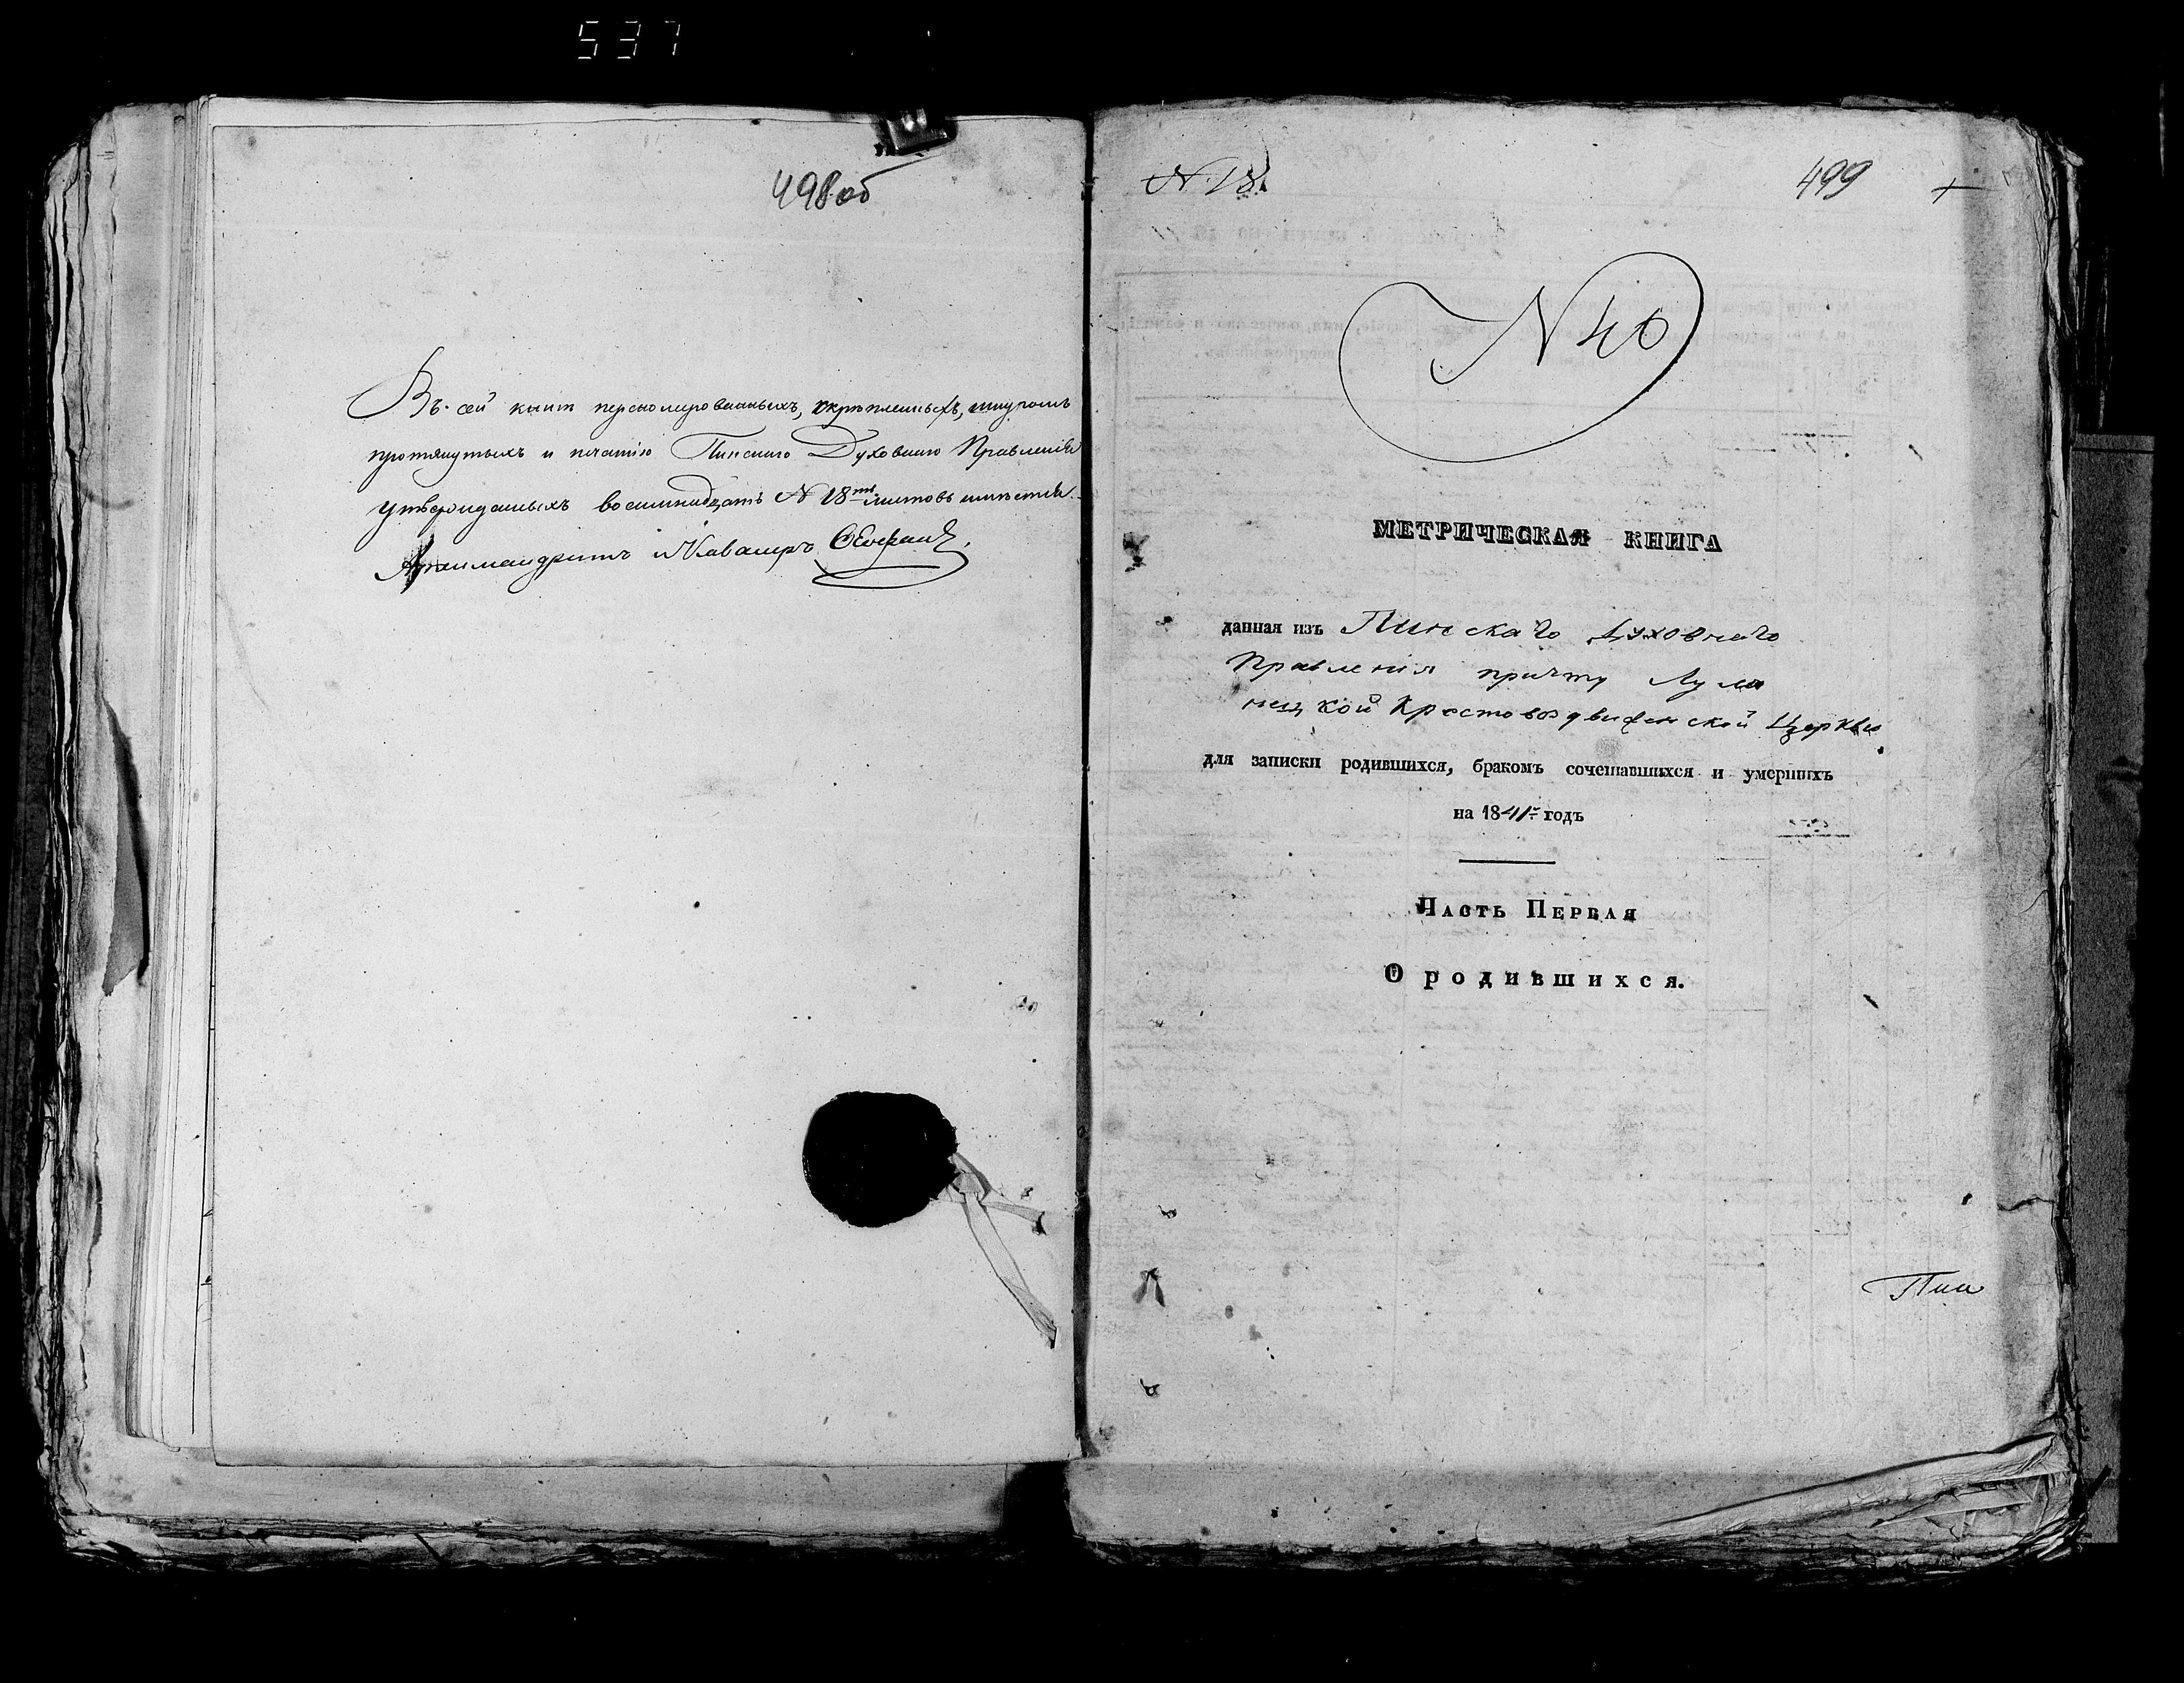 537
498 об
Въ сей книгѣ перенумерованныхъ, скрѣпленныхъ, шнуромъ
протянутыхъ и печатію Пинскаго Духовнаго Правленія
утвержденныхъ восемнадцать № 18ть листовъ имѣется.
Архимандритъ и Кавалеръ
№ 18.
499
№ 40
МЕТРИЧЕСКАЯ КНИГА
данная изъ Пинскаго Духовнаго
Правленія причту Луни
нецкой Крестовоздвиженской Церкви
для записки родившихся, бракомъ сочетавшихся и умершихъ
на 1841 годъ
Часть Первая
О родившихся.
Пин